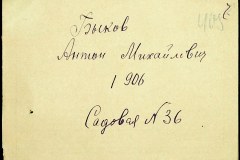 Быков
Антон Михайлевич
1906
Садовая N 36